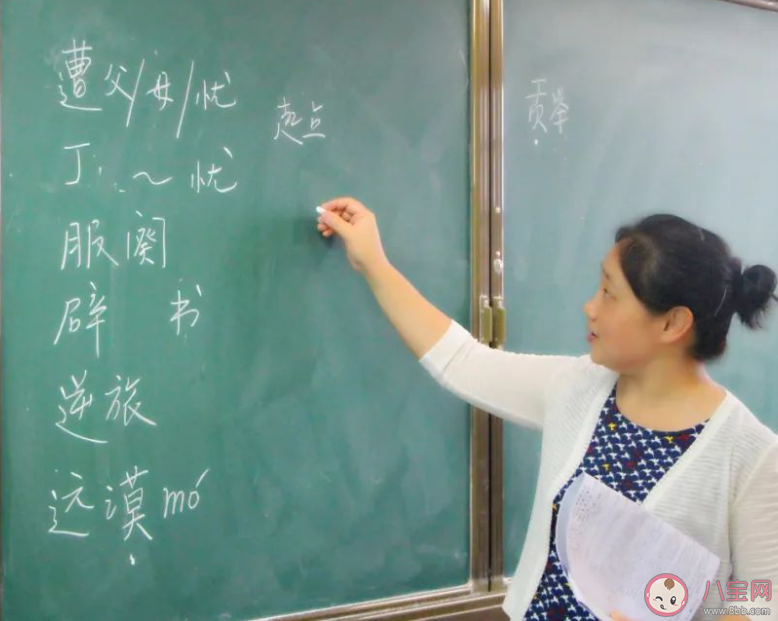 遭父/母/忧
丁…~忧
服阕
辟 书
逆旅
远漠mó
起点
贡举
八宝网
www.8bb.com